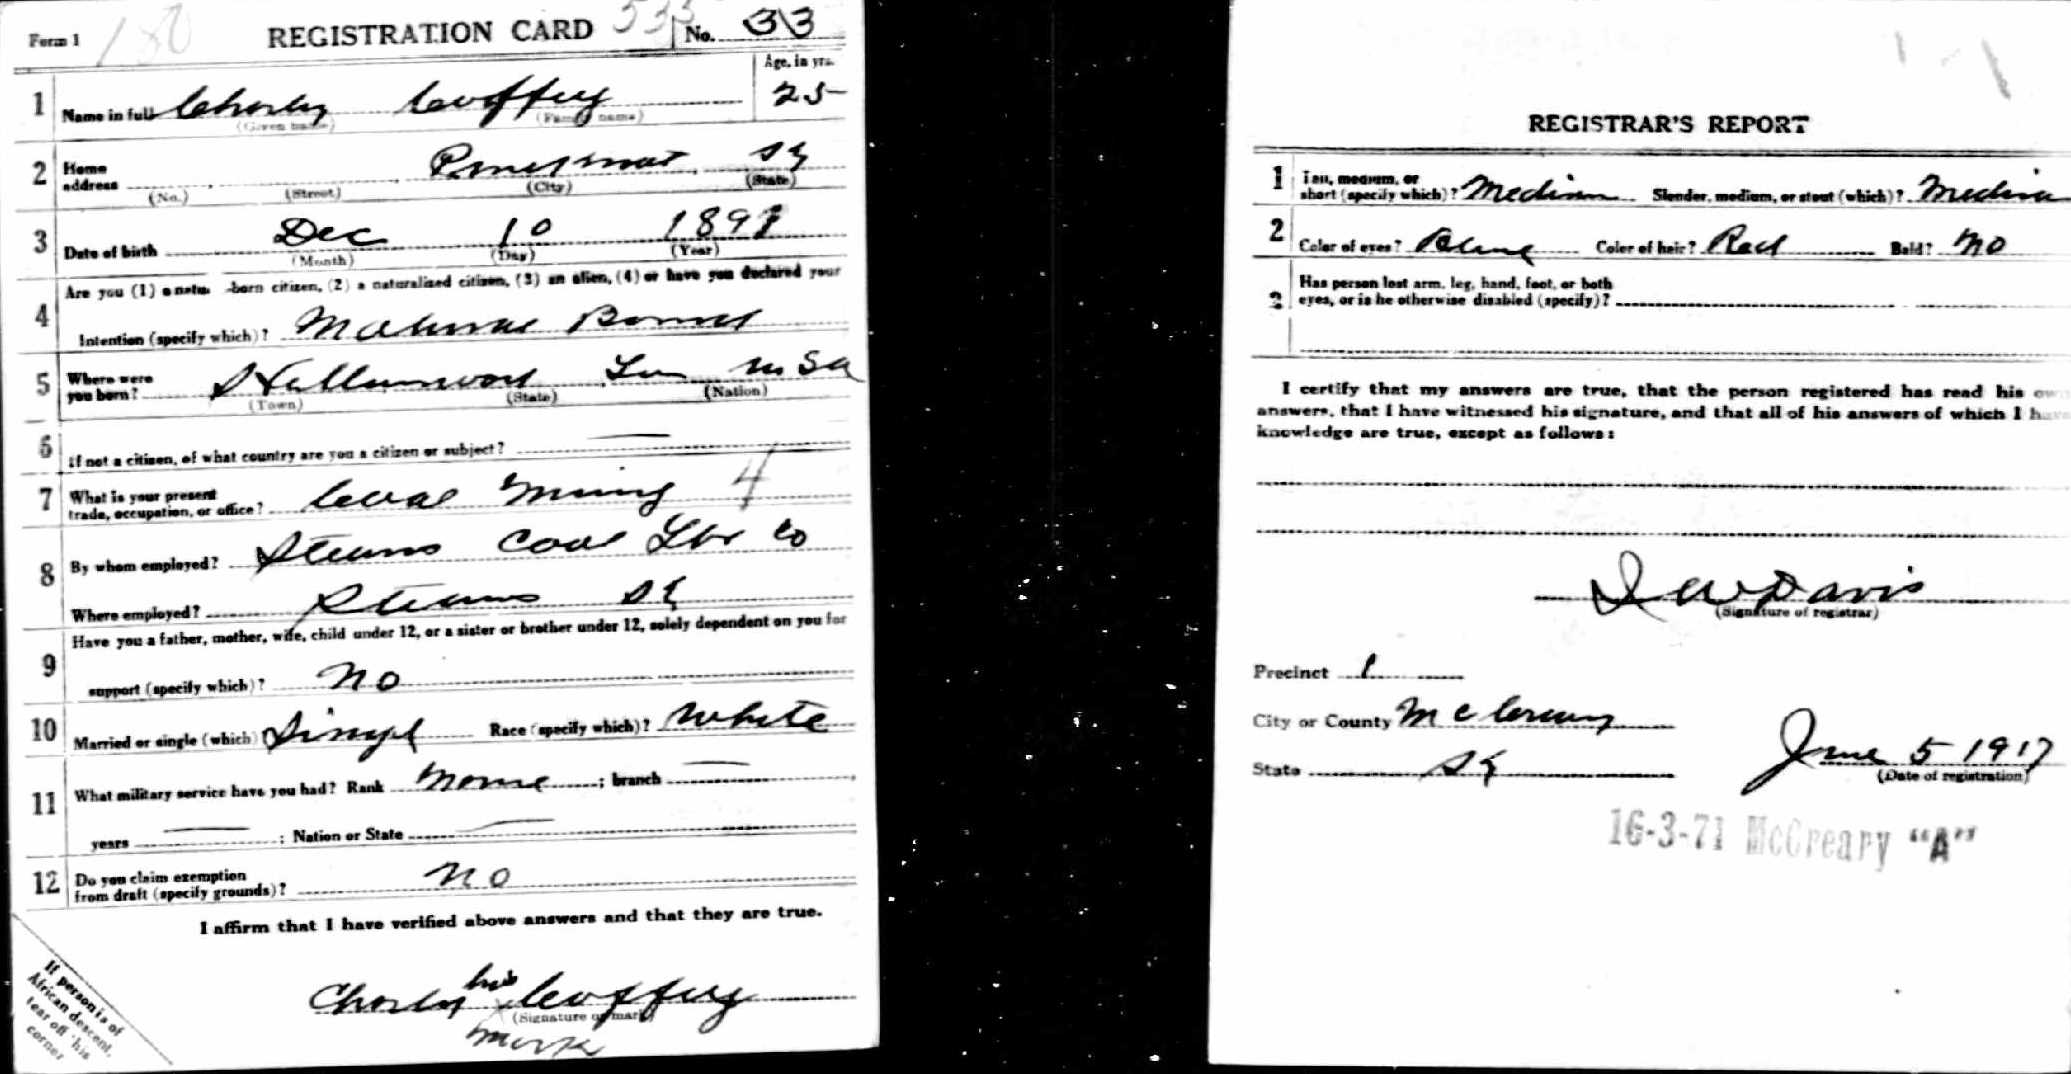 Form 1 180 REGISTRATION CARD 535 No. 33
1 Name in full Charley Coffey Age, in yrs. 25
(Given name) (Family name)
2 Home address Ky
(No.) (Street) (City) (State)
3 Date of birth Dec 10 1891
(Month) (Day) (Year)
Are you (1) a natu -born citizen, (2) a naturalized citizen, (3) an alien, (4) or have you declared your
4 Intention (specify which)? Born
5 Where were you born?
(Town) (State) (Nation)
6 If not a citizen, of what country are you a citizen or subject?
7 What is your present trade, occupation, or office? Coal Mining 4
8 By whom employed? Stearns Coal Lbr Co
Where employed? Stearns Ky
Have you a father, mother, wife, child under 12, or a sister or brother under 12, solely dependent on you for
9 support (specify which)? No
10 Married or single (which) Singl Race (specify which)? White
11 What military service have you had? Rank None ; branch
years ; Nation or State
12 Do you claim exemption from draft (specify grounds)? No
I affirm that I have verified above answers and that they are true.
Charley his Coffey
(Signature or mark)
mark
If person is of
African descent,
tear off this
corner
REGISTRAR'S REPORT
1 Tall, medium, or short (specify which)? Medium Slender, medium, or stout (which)? Medium
2 Color of eyes? Blue Color of hair? Red Bald? No
3 Has person lost arm, leg, hand, foot, or both
eyes, or is he otherwise disabled (specify)?
I certify that my answers are true, that the person registered has read his own
answers, that I have witnessed his signature, and that all of his answers of which I have
knowledge are true, except as follows:
Davis
(Signature of registrar)
Precinct 1
City or County McCreary
State Ky June 5 1917
(Date of registration)
16-3-71 McCreary "A"